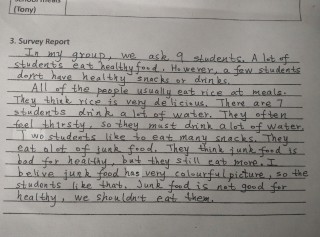 (Tony)
3. Survey Report
In my group, we ask 9 students. A lot of
students eat healthy food. However, a few students
don't have healthy snacks or drinks.
All of the people usually eat rice at meals.
They think rice is very delicious. There are 7
students drink a lot of water. They often
feel thirsty, so they must drink a lot of water.
Two students like to eat many snacks. They
eat alot of junk food. They think junk food is
bad for healthy, but they still eat more. I
belive junk food has very colourful picture, so the
students like that. Junk food is not good for
healthy, we shouldn't eat them.